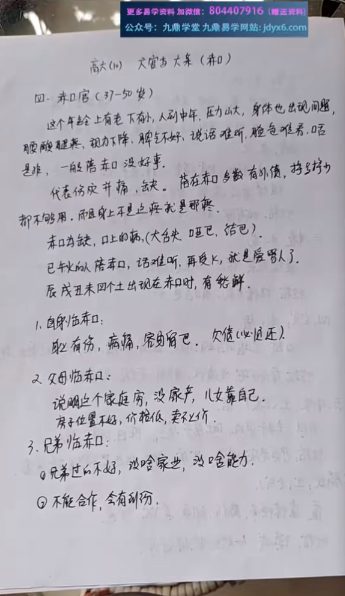 更多易学资料 加微信：804407916（赠送资料）
公众号：九鼎学堂 九鼎易学网站：jdyx6.com
高大(10) 大富方大系（赤口）
四. 赤口宫（37-50岁）
这个年龄上有老下有小，人到中年，压力山大，身体也出现问题，
腰酸腿疼，视力下降，脾气不好，说话难听，脸色难看，唔
是非，一般落赤口没好事。
代表伤灾、开痛，缺。落在赤口多数有外债，挣多挣少
都不够用，而且身上不是这疼就是那疼。
赤口为缺，口上的病，（大舌头 哑巴，结巴）.
巳午火的人落赤口，话难听，再逢火，就是爱骂人了.
辰戌丑未四个土出现在赤口时，有愁解.
1. 自身临赤口：
身上有伤，病痛，容易留疤. 欠债（必还）.
2. 父母临赤口：
说明这个家庭穷，没家产，儿女靠自己.
房子位置不好，价格低，卖不上价
3. 兄弟临赤口：
①兄弟过的不好，没啥家业，没啥能力.
②不能合作，会有纠纷.